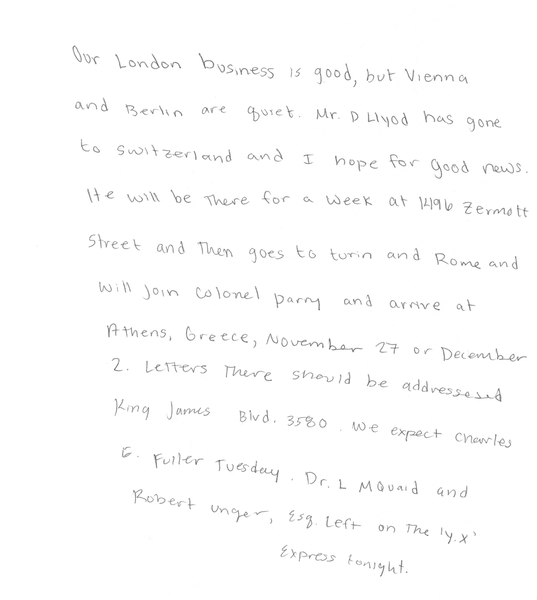 Our London business is good, but Vienna
and Berlin are quiet. Mr. D Llyod has gone
to switzerland and I hope for good news.
He will be there for a week at 1496 Zermott
street and then goes to turin and Rome and
will join colonel parry and arrive at
Athens, Greece, November 27 or December
2. Letters there should be addressesed
King James Blvd. 3580. we expect charles
E. Fuller Tuesday. Dr. L MQuaid and
Robert unger, Esq. left on the 'y.x'
Express tonight.